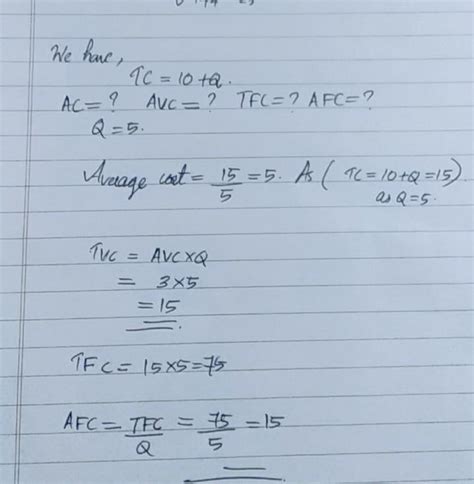 We have,
TC = 10+Q.
AC = ? AVC = ? TFC = ? AFC = ?
Q = 5.
Average cost = 15/5 = 5. As ( TC = 10+Q = 15)
as Q = 5.
TVC = AVC×Q
= 3×5
= 15
TFC = 15×5 = 75
AFC = TFC/Q = 75/5 = 15